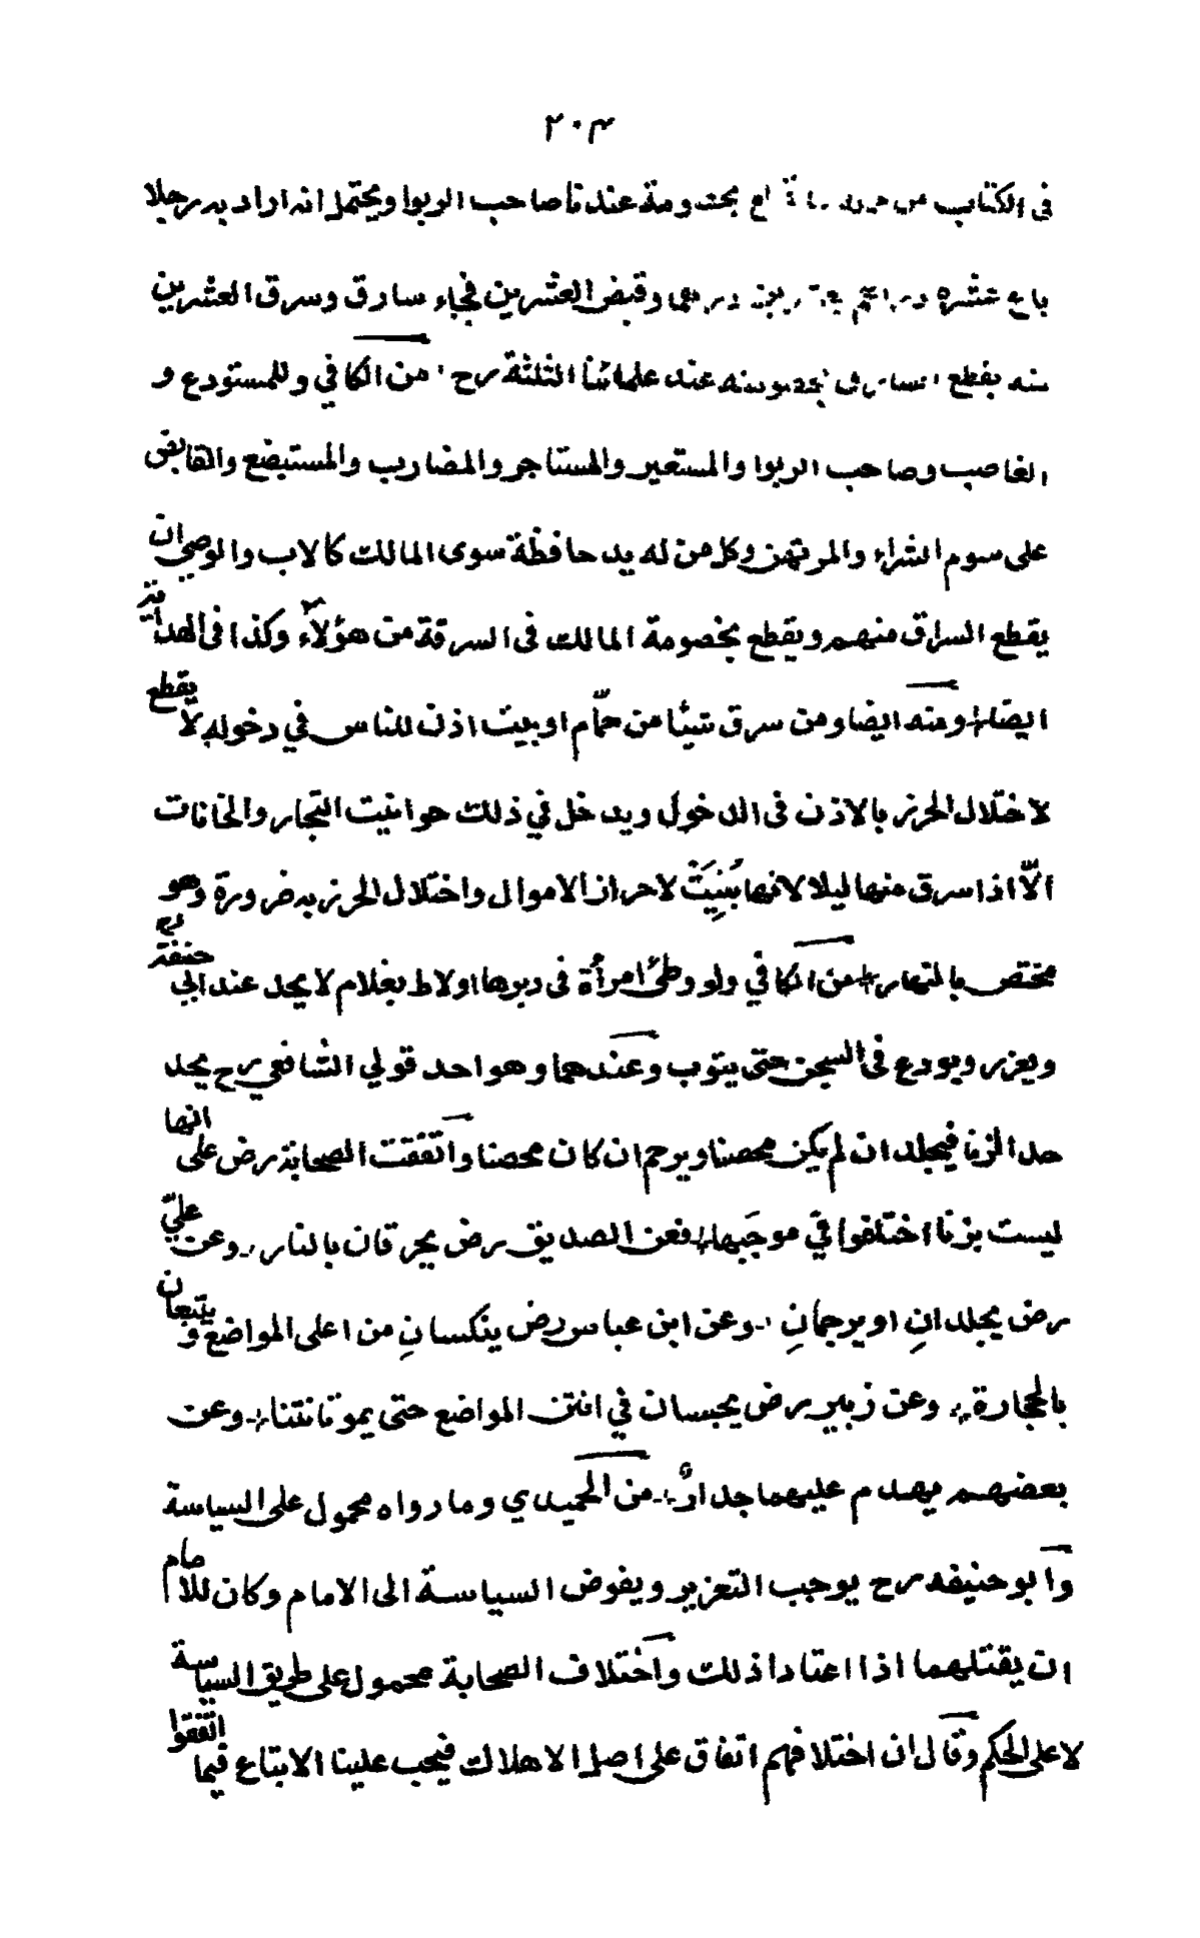 ٢٠٣
فى الكتاب من بخصومة عندنا صاحب الربوا ويحتمل انه اراد به رجلا
باع عشرة دراهم بعشرين درهما وقبض العشرين فجاء سارق وسرق العشرين
منه يقطع السارق بخصومته عند علمائنا الثلثة رح من الكافي وللمستودع و
الغاصب وصاحب الربوا والمستعير والمستاجر والمضارب والمستبضع والقابض
على سوم الشراء والمرتهن وكل من له يد حافظة سوى المالك كالاب والوصي ان
يقطع السارق منهم ويقطع بخصومة المالك فى السرقة من هؤلاء وكذا فى الهداية
ايضا ومنه ايضا ومن سرق شيئا من حمّام او بيت اذن للناس في دخوله لا يقطع
لاختلال الحرز بالاذن فى الدخول ويدخل في ذلك حوانيت التجار والخانات
الّا اذا سرق منها ليلا لانها بُنِيَتْ لاحراز الاموال واختلال الحرز به ضرورة وهو
مختص بالنهار من الكافي ولو وطئ امرأة فى دبرها اولاط بغلام لا يحد عند ابي حنيفة رح
ويعزر ويودع فى السجن حتى يتوب وعندهما وهو احد قولي الشافعي رح يحد
حد الزنا فيجلد ان لم يكن محصنا ويرجم ان كان محصنا واتفقت الصحابة رض على انها
ليست بزنا اختلفوا في موجَبها فعن الصديق رض يحرقان بالنار وعن عليّ
رض يجلدانِ او يرجمانِ وعن ابن عباس رض ينكسانِ من اعلى المواضع و يتبعان
بالحجارة وعن زبير رض يحبسان في انتن المواضع حتى يموتا نتنا وعن
بعضهم يهدم عليهما جدارٌ من الحميدي وما رواه محمول على السياسة
وابو حنيفه رح يوجب التعزير ويفوض السياسة الى الامام وكان للامام
ان يقتلهما اذا اعتادا ذلك واختلاف الصحابة محمول على طريق السياسة
لا على الحكم وقال ان اختلافهم اتفاق على اصل الاهلاك فيجب علينا الاتباع فيما اتفقوا